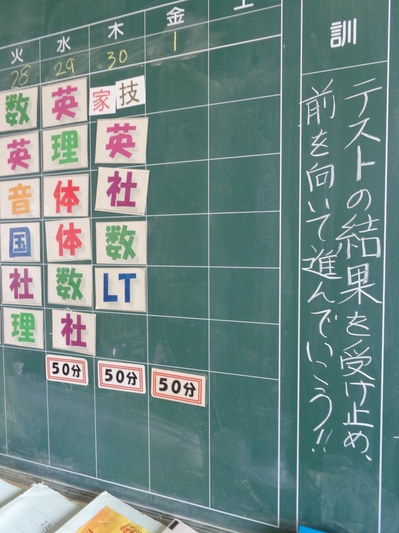 火 水 木 金 土
28 29 30 1
数 英 家 技
英 理 英
音 体 社
国 体 数
社 数 LT
理 社
50分 50分 50分
訓
テストの結果を受け止め、
前を向いて進んでいこう!!